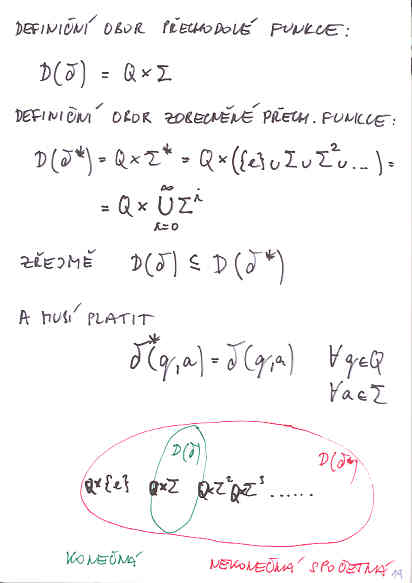 DEFINIČNÍ OBOR PŘECHODOVÉ FUNKCE:
D(δ) = Q × Σ
DEFINIČNÍ OBOR ZOBECNĚNÉ PŘECH. FUNKCE:
D(δ*) = Q × Σ* = Q × ({e} ∪ Σ ∪ Σ² ∪ ...) =
= Q × ⋃_{i=0}^{∞} Σ^i
ZŘEJMĚ D(δ) ⊆ D(δ*)
A MUSÍ PLATIT
δ*(q,a) = δ(q,a) ∀q∈Q
∀a∈Σ
D(δ) D(δ*)
Q×{e} Q×Σ Q×Σ² Q×Σ³ ......
KONEČNÁ NEKONEČNÁ SPOČETNÁ
19